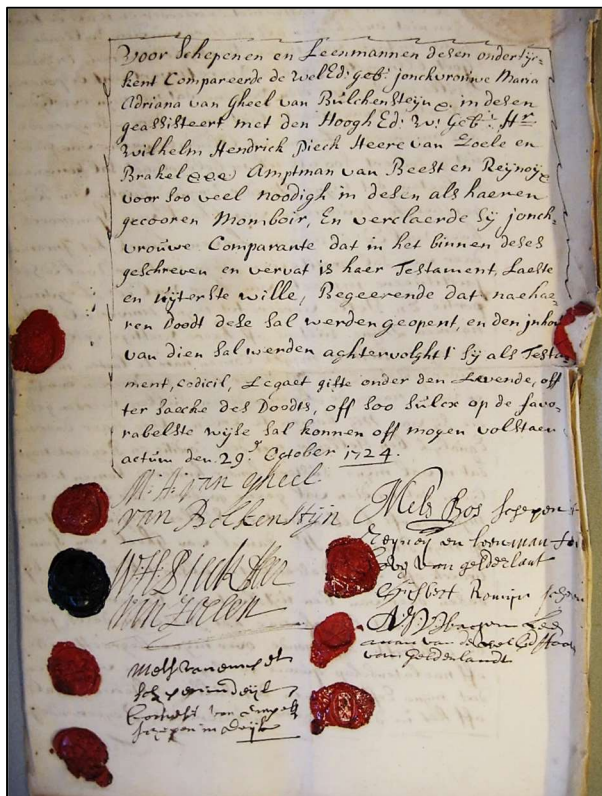 Voor Schepenen en Leenmannen desen ondertÿ-
kent Compareerde de WelEd: geb: jonckvrouwe Maria
Adriana van Gheel van Bulckensteÿn &. in desen
geassisteert met den Hoogh Ed: W: Geb:r Hr
Wilhelm Hendrick Pieck Heere van Zoele en
Brakel &&& Amptman van Beest en Reÿnoÿ &
voor soo veel noodigh in desen als haeren
gecooren Momboir, En verclaerde sÿ jonck-
vrouwe Comparante dat in het binnen deses
geschreven en vervat is haer Testament, Laeste
en uÿterste wille, Begeerende dat nae hae-
ren Doodt dese sal werden geopent, en den inhou
van dien sal werden achtervolght 't sÿ als Testa-
ment, codicil, Legaet gifte onder den Levende, off
ter saecke des Doodts, off soo sulcx op de favo-
rabelste wÿse sal konnen off mogen volstaen
actum den 29.e October 1724.
M: A: van gheel
van Bolkensteijn
W H Pieck Heer
van Zoelen
Mels Bos Schepen
Reÿneÿ en Leenman
van gelderlant
Gijsbert Romijn schepen
van de
van Gelderlandt
Mels van
Schepen in deijl
van
schepen in deijl